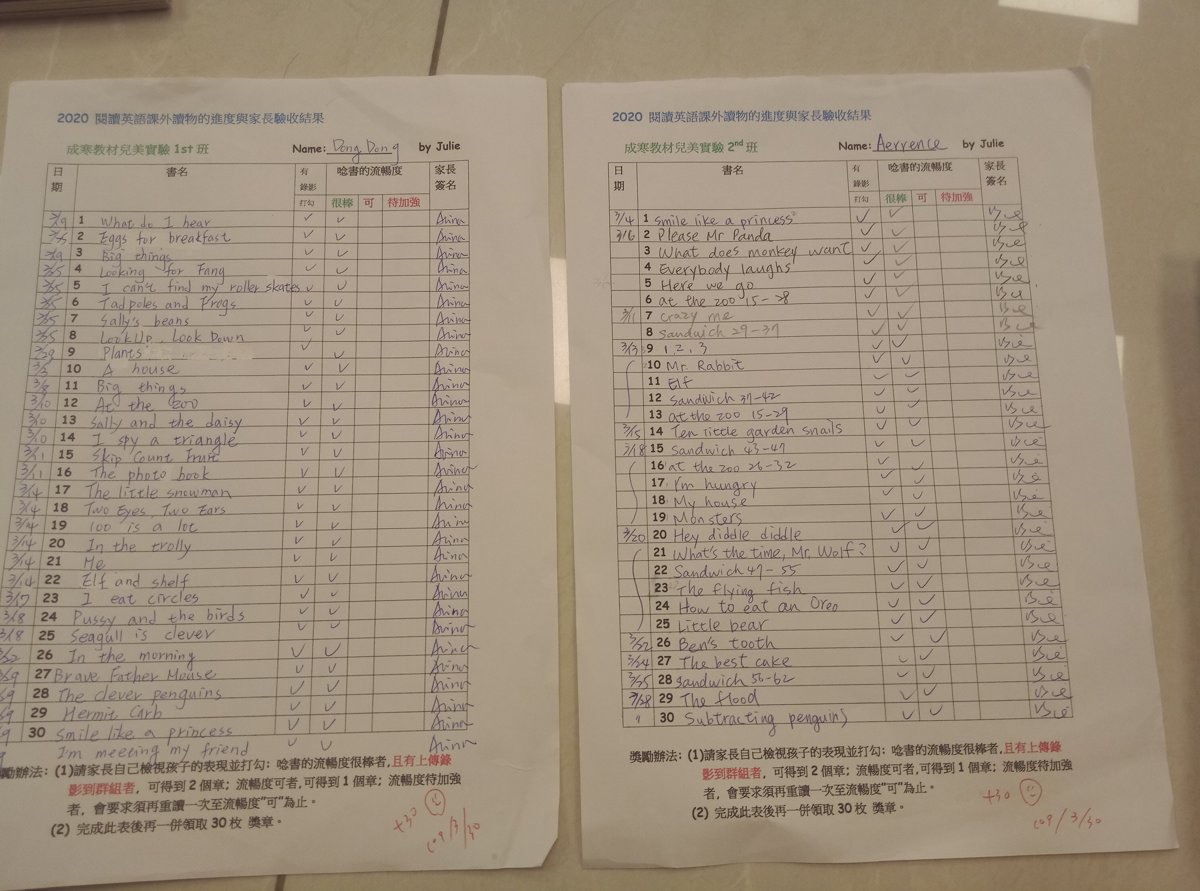 2020 閱讀英語課外讀物的進度與家長驗收結果
成寒教材兒美實驗 1st 班 Name: Dong Dong by Julie
日期 書名 有錄影打勾 唸書的流暢度 家長簽名
很棒 可 待加強
1 What do I hear
2 Eggs for breakfast
3 Big things
4 Looking for Fang
5 I can't find my roller skates
6 Tadpoles and Frogs
7 Sally's beans
8 Look Up, Look Down
9 Plants
10 A house
11 Big things
3/10 12 At the zoo
3/10 13 Sally and the daisy
3/10 14 I spy a triangle
3/11 15 Skip Count Fruit
3/11 16 The photo book
3/14 17 The little snowman
3/14 18 Two Eyes, Two Ears
3/14 19 100 is a lot
3/14 20 In the trolly
3/14 21 Me
3/14 22 Elf and shelf
3/17 23 I eat circles
3/18 24 Pussy and the birds
3/18 25 Seagull is clever
26 In the morning
27 Brave Father Mouse
28 The clever penguins
29 Hermit Carb
30 Smile like a princess
I'm meeting my friend
勵辦法: (1)請家長自己檢視孩子的表現並打勾: 唸書的流暢度很棒者, 且有上傳錄
影到群組者, 可得到 2 個章; 流暢度可者, 可得到 1 個章; 流暢度待加強
者, 會要求須再重讀一次至流暢度"可"為止。
(2) 完成此表後再一併領取 30 枚 獎章。
+30
109/3/30
2020 閱讀英語課外讀物的進度與家長驗收結果
成寒教材兒美實驗 2nd 班 Name: Aerrence by Julie
日期 書名 有錄影打勾 唸書的流暢度 家長簽名
很棒 可 待加強
3/4 1 Smile like a princess
3/6 2 Please Mr Panda
3 What does monkey want
4 Everybody laughs
5 Here we go
6 at the zoo 15-28
3/11 7 crazy me
8 sandwich 29-37
3/13 9 1, 2, 3
10 Mr. Rabbit
11 Elf
12 sandwich 37-42
13 at the zoo 15-29
3/15 14 Ten little garden snails
3/18 15 sandwich 43-47
16 at the zoo 25-32
17 I'm hungry
18 My house
19 Monsters
3/20 20 Hey diddle diddle
21 What's the time, Mr. Wolf?
22 Sandwich 47-55
23 The flying fish
24 How to eat an Oreo
25 Little bear
3/22 26 Ben's tooth
3/24 27 The best cake
3/25 28 sandwich 56-62
3/28 29 The flood
" 30 Subtracting penguins
獎勵辦法: (1)請家長自己檢視孩子的表現並打勾: 唸書的流暢度很棒者, 且有上傳錄
影到群組者, 可得到 2 個章; 流暢度可者, 可得到 1 個章; 流暢度待加強
者, 會要求須再重讀一次至流暢度"可"為止。
(2) 完成此表後再一併領取 30 枚 獎章。
+30
109/3/30